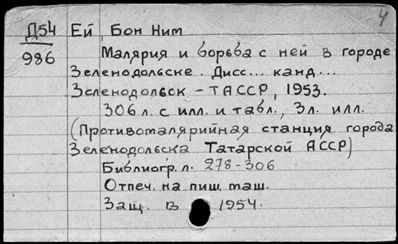 4
Д54 Ей, Бон Ним
986 Малярия и борьба с ней в городе
Зеленодольске. Дисс... канд...
Зеленодольск - ТАССР, 1953.
306 л. с илл. и табл., 3л. илл.
(Противомалярийная станция города
Зеленодольска Татарской АССР)
Библиогр. л. 278-306
Отпеч. на пиш. маш.
Защ. в 1954.